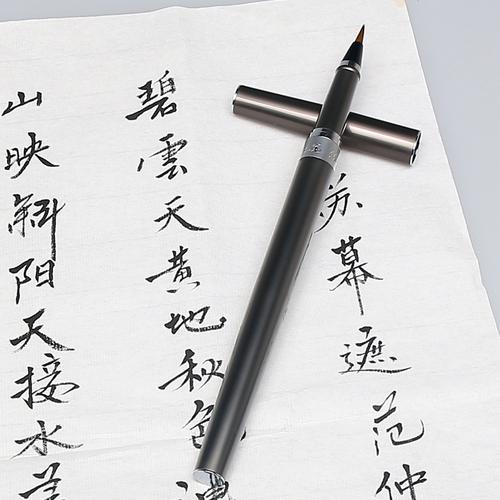 苏幕遮范仲
碧雲天黄地秋色
山映斜阳天接水